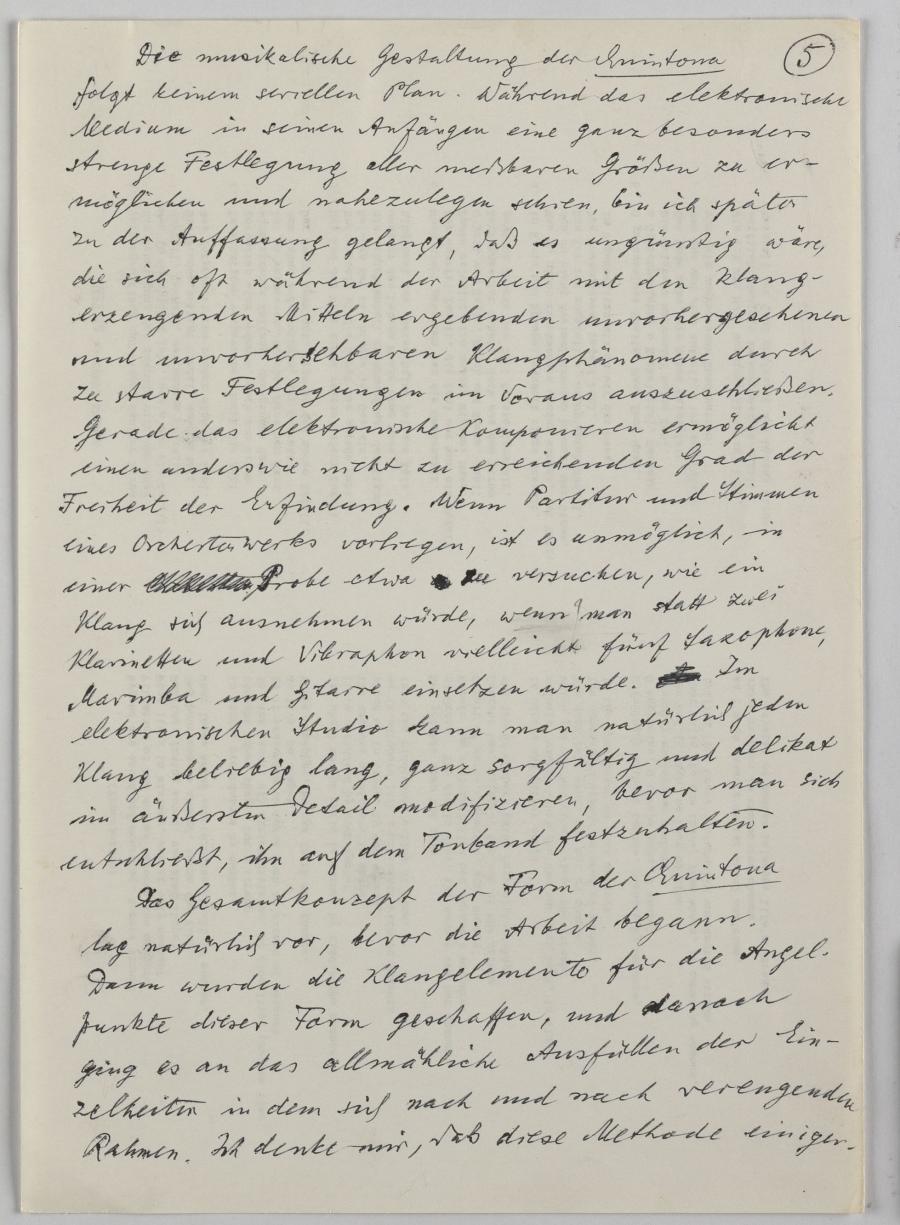 Die musikalische Gestaltung der Quintona
5
folgt keinem seriellen Plan. Während das elektronische
Medium in seinen Anfängen eine ganz besonders
strenge Festlegung aller meßbaren Größen zu er-
möglichen und nahezulegen schien, bin ich später
zu der Auffassung gelangt, daß es ungünstig wäre,
die sich oft während der Arbeit mit den klang-
erzeugenden Mitteln ergebenden unvorhergesehenen
und unvorhersehbaren Klangphänomene durch
zu starre Festlegungen im Voraus auszuschließen.
Gerade das elektronische Komponieren ermöglicht
einen anderswie nicht zu erreichenden Grad der
Freiheit der Erfindung. Wenn Partitur und Stimmen
eines Orchesterwerks vorliegen, ist es unmöglich, in
einer Probe etwa zu versuchen, wie ein
Klang sich ausnehmen würde, wenn man statt zwei
Klarinetten und Vibraphon vielleicht fünf Saxophone,
Marimba und Gitarre einsetzen würde. Im
elektronischen Studio kann man natürlich jeden
Klang beliebig lang, ganz sorgfältig und delikat
im äußersten Detail modifizieren, bevor man sich
entschließt, ihn auf dem Tonband festzuhalten.
Das Gesamtkonzept der Form der Quintona
lag natürlich vor, bevor die Arbeit begann.
Dann wurden die Klangelemente für die Angel-
punkte dieser Form geschaffen, und danach
ging es an das allmähliche Ausfüllen der Ein-
zelheiten in dem sich nach und nach verengenden
Rahmen. Ich denke mir, daß diese Methode einiger-